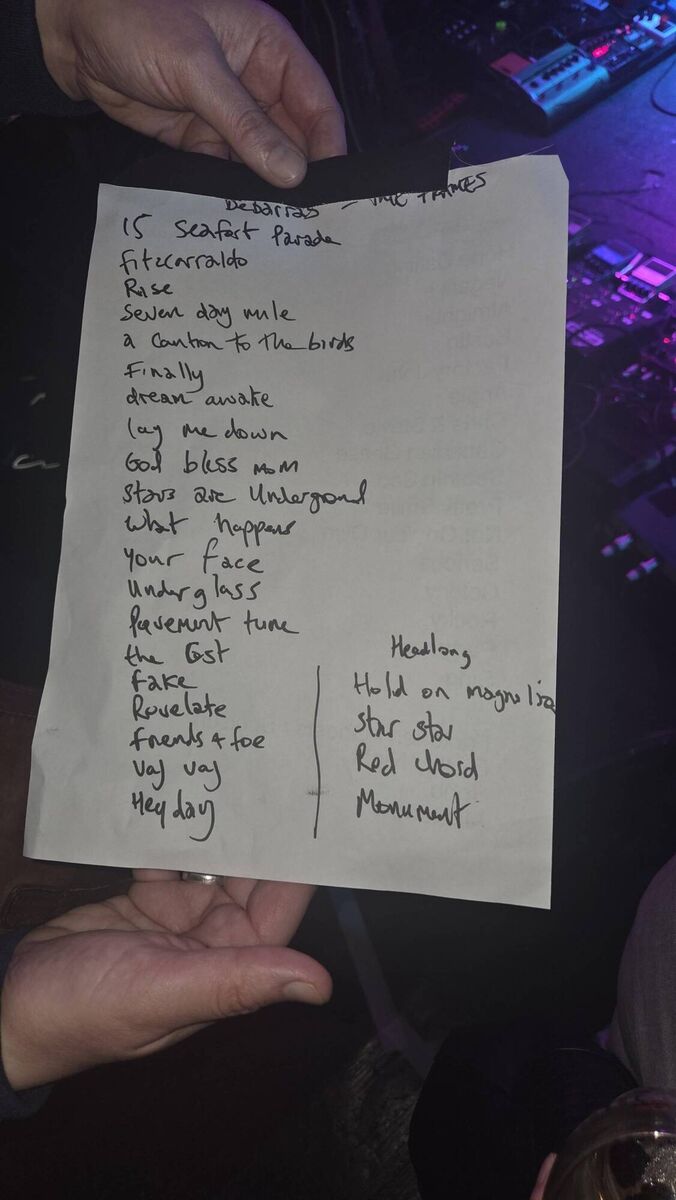 Debarras - THE FRAMES
15 Seafort Parade
fitzcarraldo
Rise
Seven day mile
a Caution to the birds
Finally
dream awake
lay me down
God bless MOM
Stars are Underground
What happens
Your face
Underglass
Pavement tune
the Cost
Fake
Revelate
friends & foe
Vaj vaj
Heyday
Headlong
Hold on magnolia
Star star
Red chord
Monument